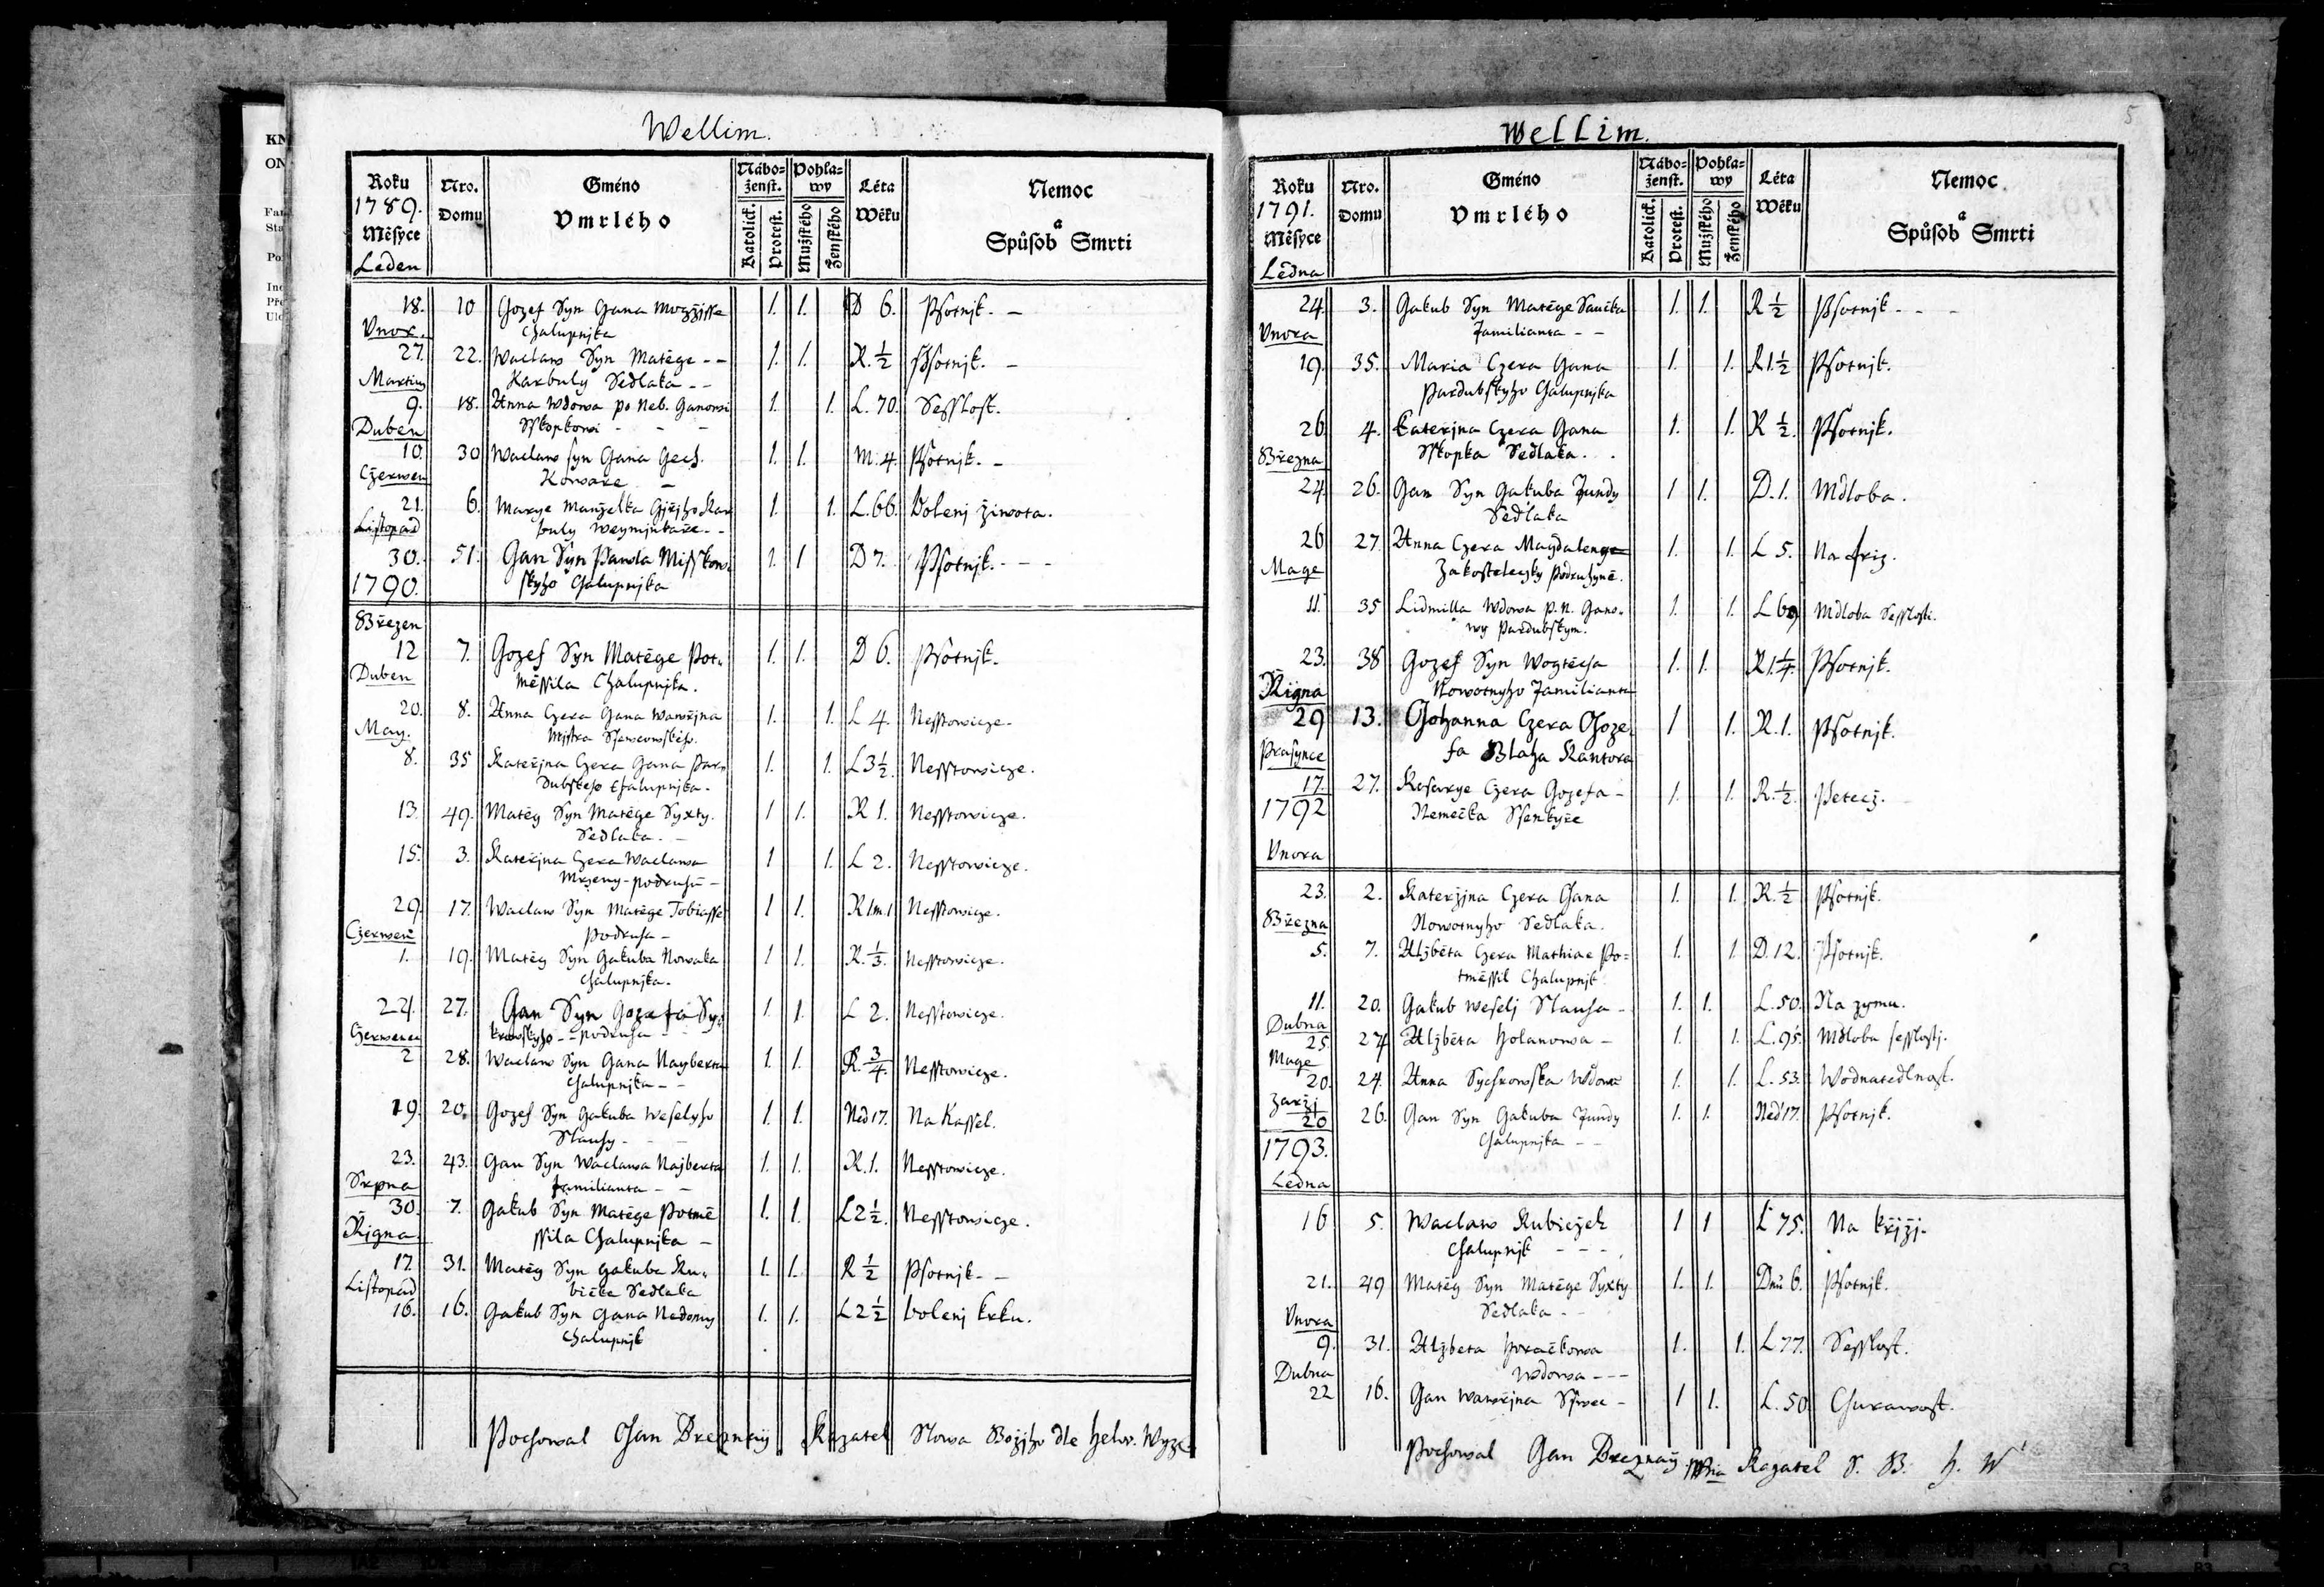 Wellim.
Roku 1789. Měsyce Leden
Nro. Domu
Gméno Vmrlého
Nábo=ženst. Katolick. Protest.
Pohla=wy Mužského Ženského
Léta Wěku
Nemoc a Spůsob Smrti
18. 10 Gozef Syn Gana 1. 1. D 6. Psotnjk. –
Chalupnjka
Vnor.
27. 22. Waclaw Syn Matěge – – 1. 1. R. ½ Psotnjk. –
Karbuly Sedlaka – –
Martius
9. 18. Anna Wdowa po Neb. Ganowi 1. 1. L. 70. Sesslost.
Sskopkowi – – –
Duben
10. 30 Waclaw syn Gana Gech. 1. 1. M. 4. Psotnjk. –
Kowaře –
Czerwen
21. 6. Marye Manželka Gjřjho Kar 1. 1. L. 66. Bolenj žiwota.
buly Weymjnkaře – –
Listopad
30. 51. Gan Syn Pawla Misskow 1. 1 D 7. Psotnjk. – – –
skyho Chalupnjka
1790.
Březen
12 7. Gozef Syn Matěge Pot„ 1. 1. D 6. Psotnjk.
měssila Chalupnjka.
Duben
20. 8. Anna Czera Gana Wawřjna 1. 1. L 4. Nesstowicze.
Mistra
May.
8. 35 Kateřjna Czera Gana Par„ 1. 1. L 3½. Nesstowicze.
dubskeho Chalupnjka.
13. 49. Matěg Syn Matěge Syxty. 1 1. R 1. Nesstowicze.
Sedlaka. –
15. 3. Kateřjna Czera Waclawa 1 1. L 2. Nesstowicze.
podruhů –
29. 17. Waclaw Syn Matěge Tobiasse 1 1. R 1 m. 1 Nesstowicze.
Podruha –
Czerweň
1. 19. Matěg Syn Gakuba Nowaka 1 1. R. ⅓. Nesstowicze.
Chalupnjka.
24. 27. Gan Syn Gozefa Sy„ 1. 1. L 2. Nesstowicze.
krowskyho – – podruha –
Czerwence
2 28. Waclaw Syn Gana Nayberta 1. 1. R. ¾. Nesstowicze.
Chalupnjka – –
19. 20. Gozef Syn Gakuba Weselyho 1. 1. Ned 17. Na Kassel.
Slauhy – –
23. 43. Gan Syn Waclawa Najberta 1. 1. R. 1. Nesstowicze.
familianta – –
Srpna
30. 7. Gakub Syn Matěge Potmě 1. 1. L 2½. Nesstowicze.
ssila Chalupnjka –
Řigna
17. 31. Matěg Syn Gakuba Ku„ 1. 1. R ½ Psotnjk. –
bička Sedlaka
Listopad
16. 16. Gakub Syn Gana Nedomy 1. 1. L 2½ bolenj krku.
Chalupnjk
Pochowal Gan Breznaÿ Kazatel Slowa Božjho dle Helw. Wyzn
5
Wellim.
Roku 1791. Měsyce Ledna
Nro. Domu
Gméno Vmrlého
Nábo=ženst. Katolick. Protest.
Pohla=wy Mužského Ženského
Léta Wěku
Nemoc a Spůsob Smrti
24. 3. Gakub Syn Matěge Saučka 1. 1. R ½ Psotnjk. – –
Familianta – –
Vnora
19. 35. Maria Czera Gana 1. 1. R 1½ Psotnjk.
Pardubskyho Chalupnjka
26. 4. Kateřjna Czera Gana 1. 1. R ½. Psotnjk.
Sskopka Sedlaka. .
Března
24. 26. Gan Syn Gakuba Jundy 1 1. D. 1. Mdloba.
Sedlaka
26 27. Anna Czera Magdaleny 1. 1. L 5.
Zakostelezky Podruhyně.
Mage
11. 35 Lidmilla Wdowa p. n. Gano„ 1. 1. L 69 Mdloba Sesslosti.
wy Pardubskym.
23. 38 Gozef Syn Wogtěcha 1. 1. R 1¼. Psotnjk.
Nowotnyho Familianta
Řigna
29 13. Gohanna Czera Goze„ 1 1. R. 1. Psotnjk.
fa Blaha Kantora
Prasynce
17. 27. Rosarye Czera Gozefa – 1. 1. R. ½.
Němečka Ssenkyře
1792
Vnora
23. 2. Kateržjna Czera Gana 1. 1. R. ½ Psotnjk.
Nowotnyho Sedlaka.
Března
5. 7. Alžběta Czera Mathiae Po= 1. 1. D. 12. Psotnjk.
tměssil Chalupnjk
11. 20. Gakub Weselj Slauha – 1. 1. L. 50. Na zymu.
Dubna
25. 27 Alžběta Holanowa – 1. 1. L. 95. Mdloba sesslostj.
Mage
20. 24. Anna Sychrowska Wdowa 1. 1. L. 53. Wodnatedlnost.
Zaržj
20 26. Gan Syn Gakuba Jundy 1. 1. Ned 17. Psotnjk.
Chalupnjka – –
1793.
Ledna
16 5. Waclaw Kubiczek 1 1 L 75. Na křjžj.
Chalupnjk – – –
21. 49 Matěg Syn Matěge Syxty 1. 1. Dnů 6. Psotnjk.
Sedlaka –
Vnora
9. 31. Alžbeta Horačkowa 1. 1. L 77. Sesslost.
Wdowa – – –
Dubna
22 16. Gan Wawřjna Sswec – 1 1. L. 50 Churawost.
Pochowal Gan Breznaÿ Kazatel S. B. H. W